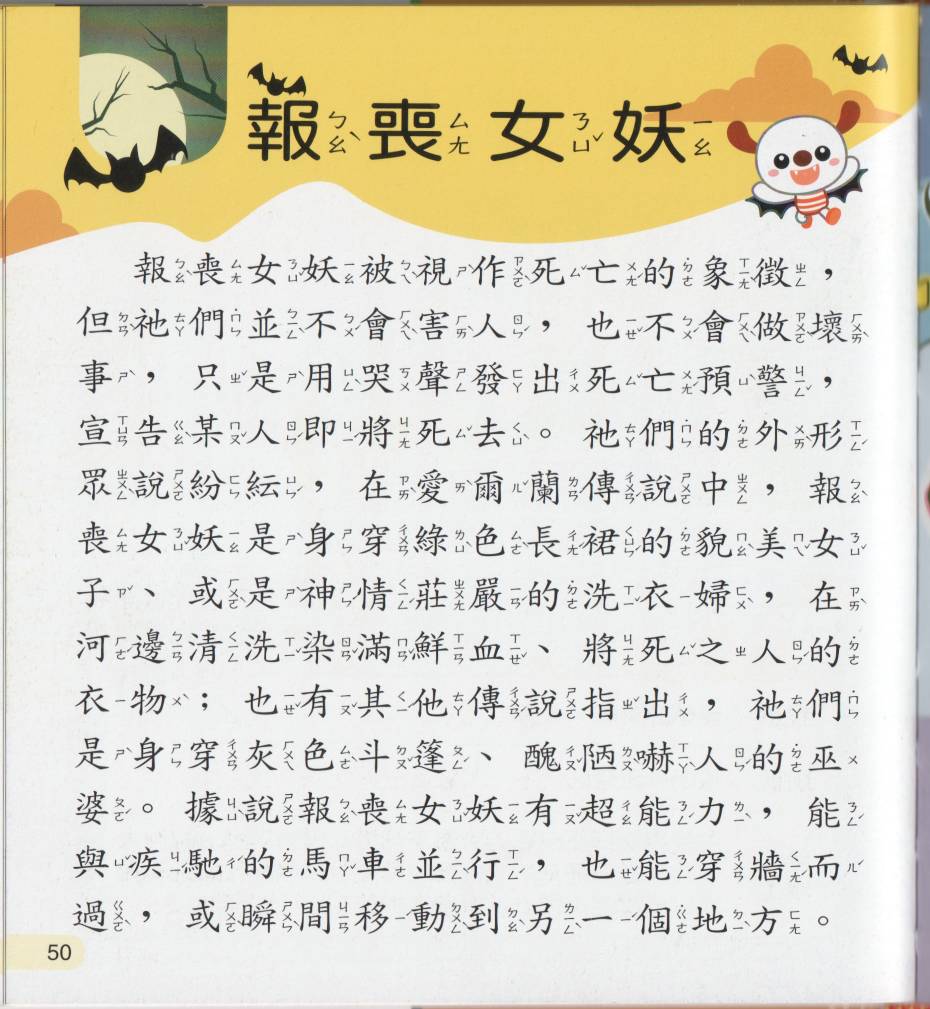 報喪女妖
報喪女妖被視作死亡的象徵，
但祂們並不會害人，也不會做壞
事，只是用哭聲發出死亡預警，
宣告某人即將死去。祂們的外形
眾說紛紜，在愛爾蘭傳說中，報
喪女妖是身穿綠色長裙的貌美女
子、或是神情莊嚴的洗衣婦，在
河邊清洗染滿鮮血、將死之人的
衣物；也有其他傳說指出，祂們
是身穿灰色斗篷、醜陋嚇人的巫
婆。據說報喪女妖有超能力，能
與疾馳的馬車並行，也能穿牆而
過，或瞬間移動到另一個地方。
50